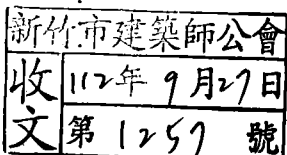 新竹市建築師公會
收文
112年 9月27日
第 1257 號